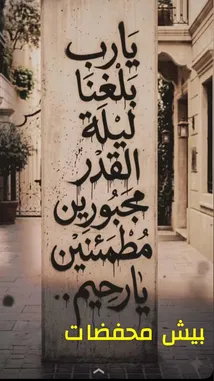 يَارب
بَلِّغنَا
ليْلَة
القَدْر
مَجبُورين
مُطْمَئنين
يَارَحيم..
بيش محفضات